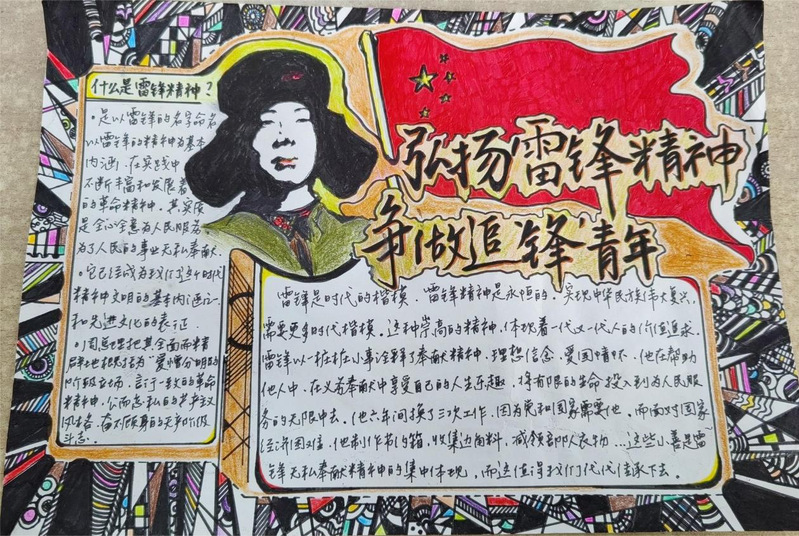 弘扬雷锋精神
争做追"锋"青年
什么是雷锋精神?
·是以雷锋的名字命名
以雷锋的精神为基本
内涵,在实践中
不断丰富和发展着
的革命精神。其实质
是全心全意为人民服务
为了人民的事业无私奉献.
·它已经成为我们这个时代
精神文明的基本内涵
和先进文化的表征.
·周总理把其全面而精
辟地概括为"爱憎分明的
阶级立场、言行一致的革命
精神、公而忘私的共产主义
风格、奋不顾身的无产阶级
斗志.
雷锋是时代的楷模,雷锋精神是永恒的。实现中华民族伟大复兴,
需要更多时代楷模。这种崇高的精神,体现着一代又一代人的价值追求.
雷锋以一桩桩小事诠释了奉献精神、理想信念、爱国情怀。他在帮助
他人中、在义务奉献中享受自己的人生乐趣,将有限的生命投入到为人民服
务的无限中去。他六年间换了三次工作,因为党和国家需要他。而面对国家
经济困难,他制作节约箱,收集边角料,减领部队衣物…这些小善是雷
锋无私奉献精神的集中体现,而这值得我们代代传承下去。